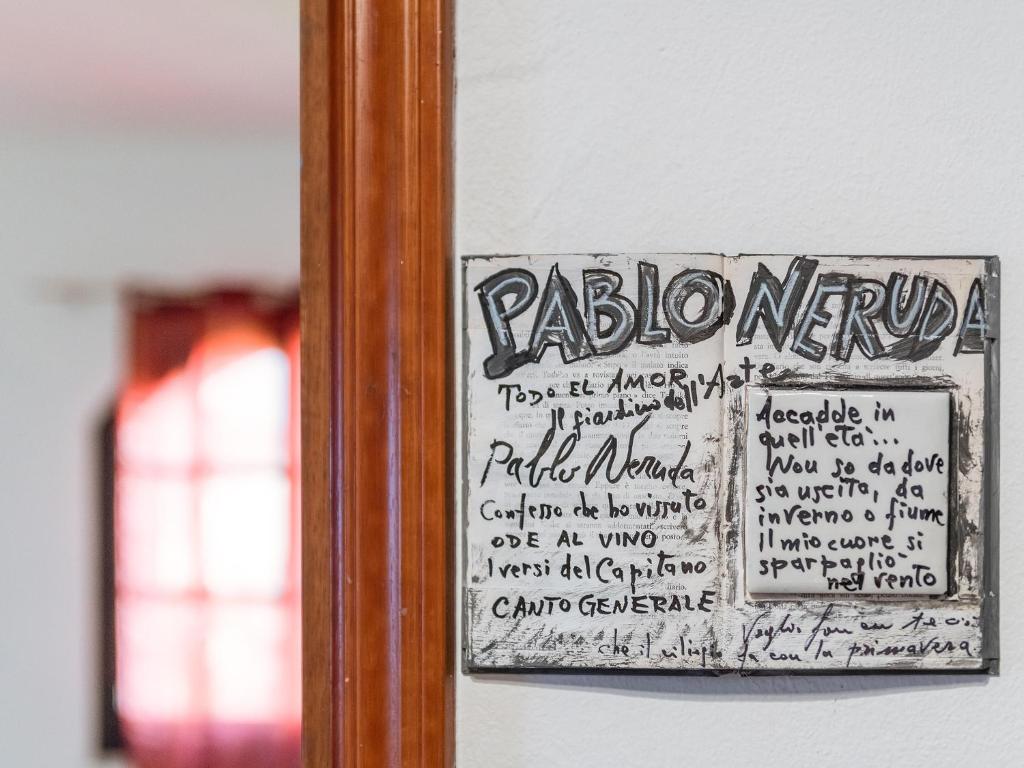 PABLO NERUDA
TODO EL AMOR
Il giardino dell'Arte
Pablo Neruda
Confesso che ho vissuto
ODE AL VINO
I versi del Capitano
CANTO GENERALE
Accadde in
quell'età...
Non so da dove
sia uscita, da
inverno o fiume
Il mio cuore si
sparpagliò
nel vento
Voglio fare con te ciò
che il ciliegio fa con la primavera